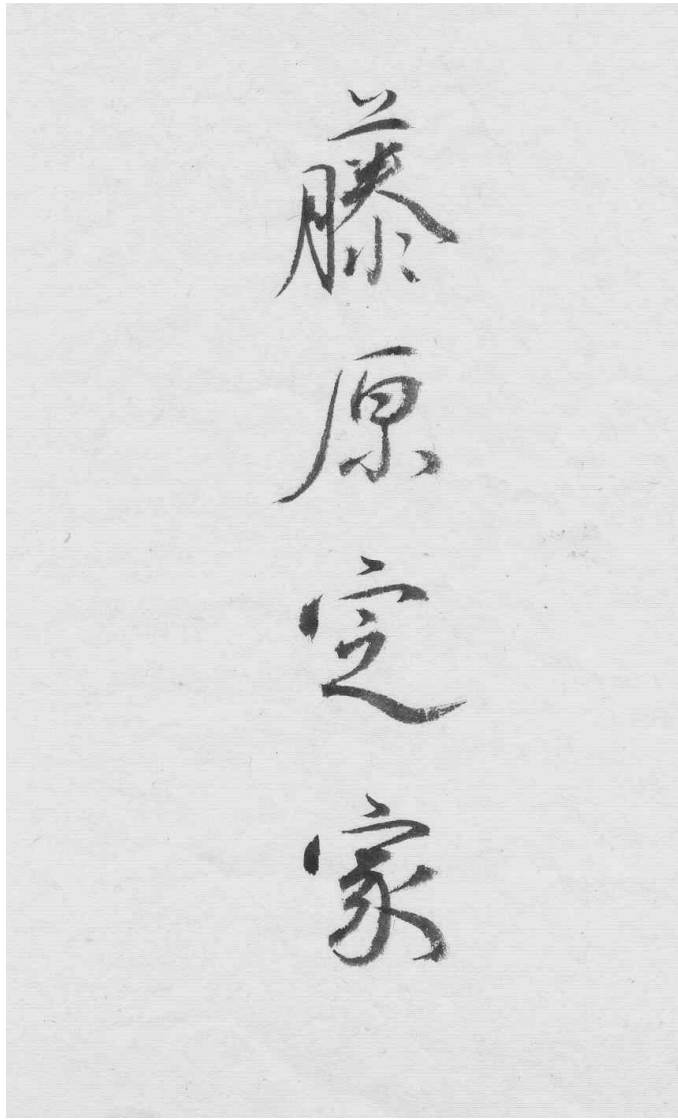 藤原定家